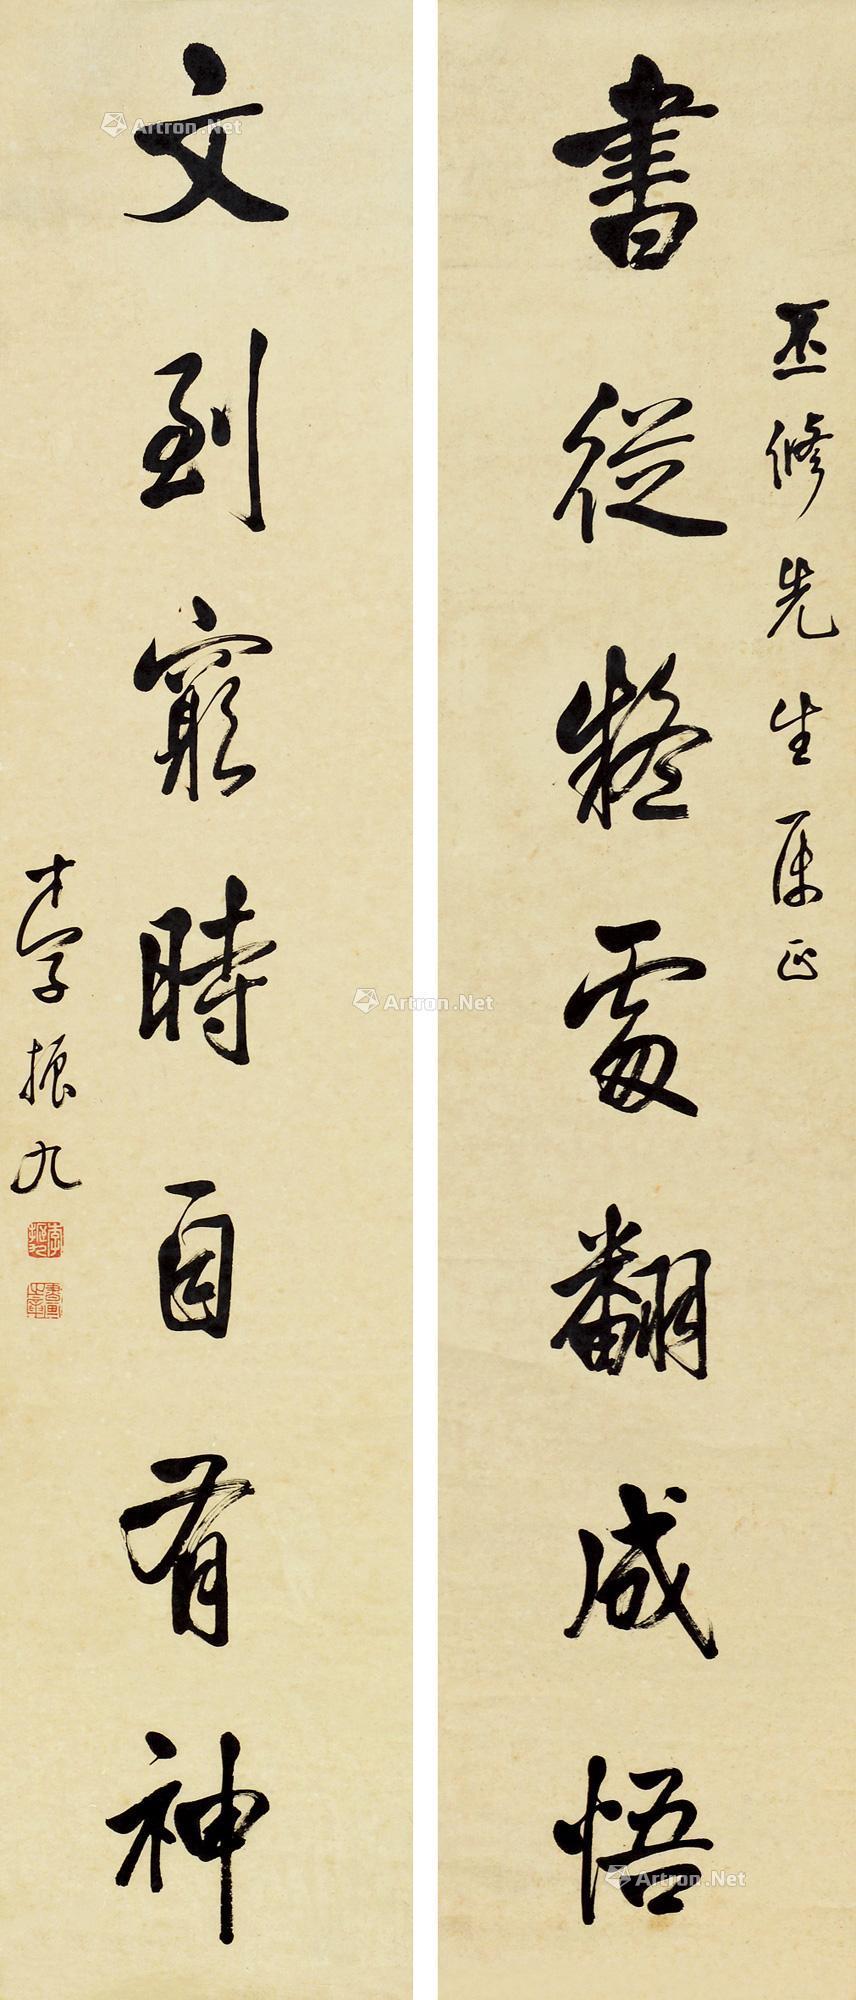 丕修先生属正
書從疑處翻成悟
文到窮時自有神
李振九
李振九
書畫之章
Artron.Net
Artron.Net
Artron.Net